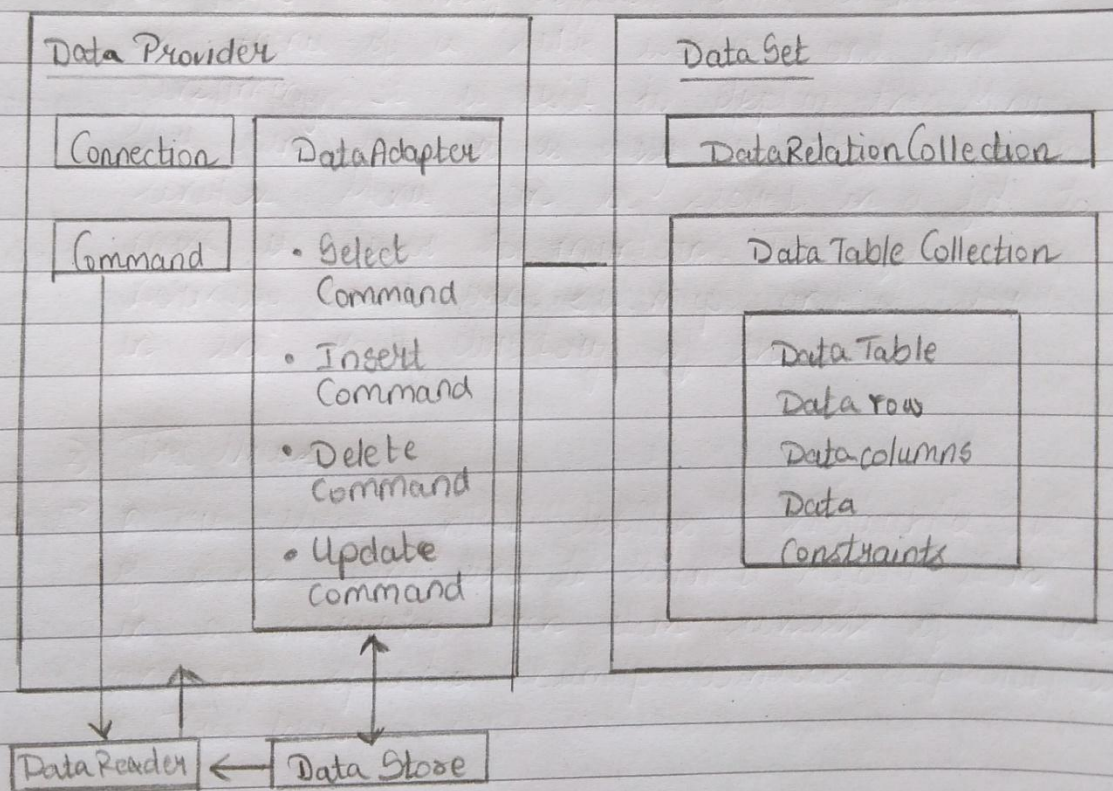 Data Provider
Connection
Command
DataAdapter
• Select
Command
• Insert
Command
• Delete
Command
• Update
command
Data Set
DataRelationCollection
Data Table Collection
Data Table
Data row
Data columns
Data
Constraints
DataReader
Data Store